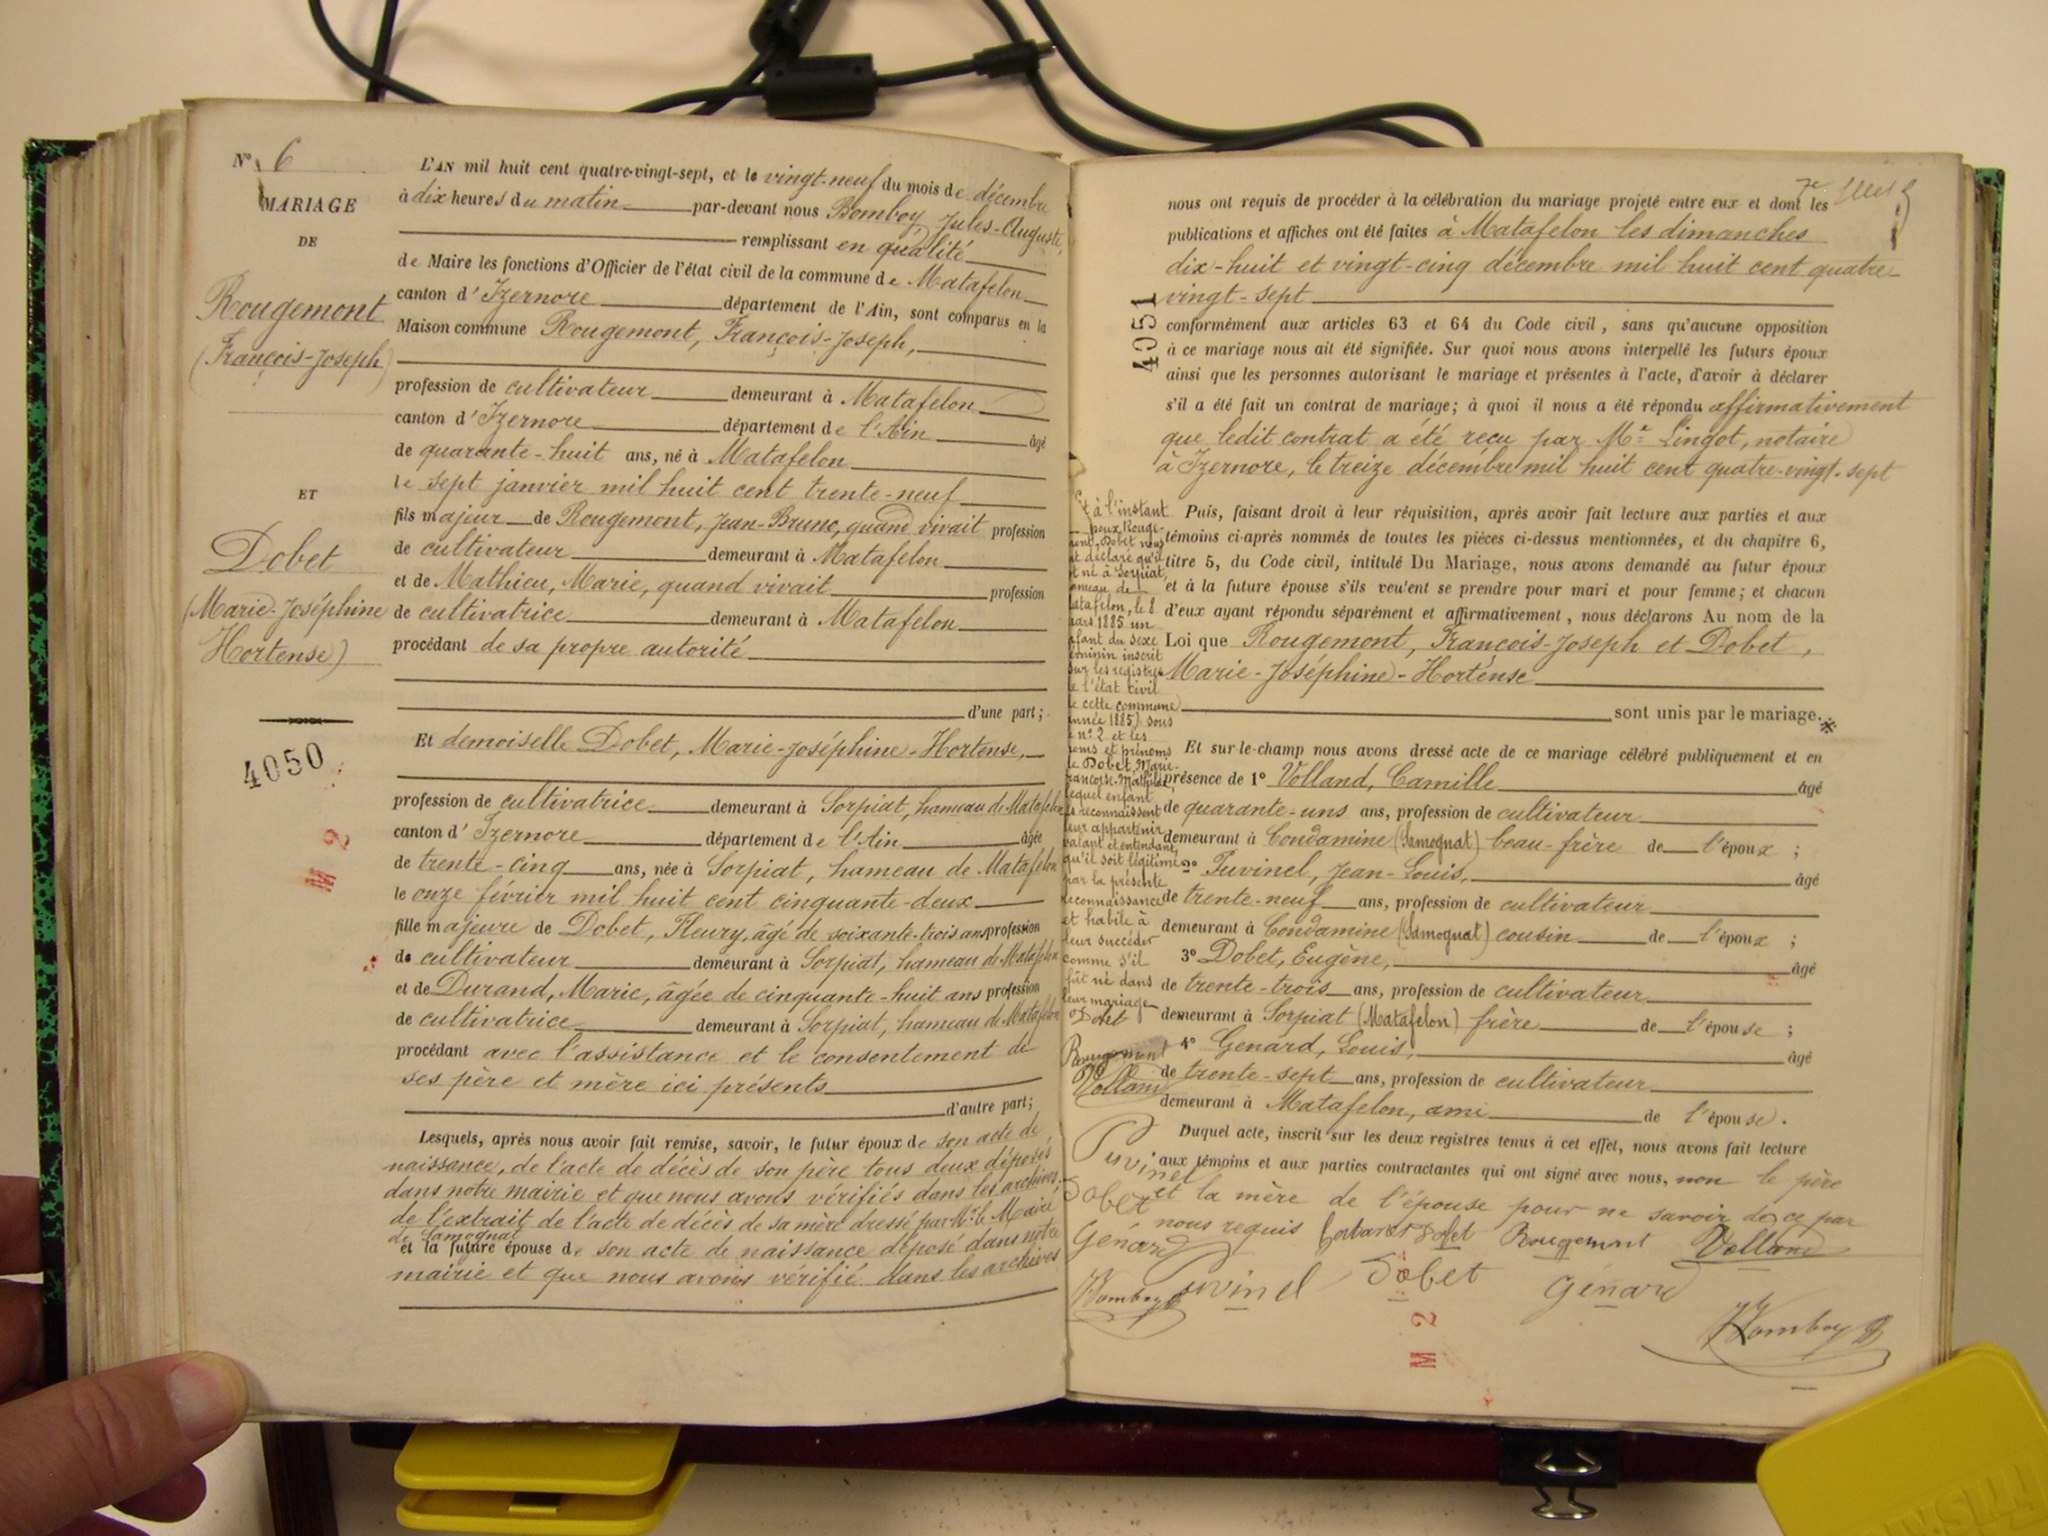 N° 6
MARIAGE
DE
Rougemont
(François-Joseph)
ET
Dobet
(Marie-Joséphine
Hortense)
4050
M 2
L'AN mil huit cent quatre-vingt-sept, et le vingt-neuf du mois de décembre
à dix heures du matin par-devant nous Bomboy, Jules-Auguste,
remplissant en qualité
de Maire les fonctions d'Officier de l'état civil de la commune de Matafelon
canton d'Izernore département de l'Ain, sont comparus en la
Maison commune Rougemont, François-Joseph,
profession de cultivateur demeurant à Matafelon
canton d'Izernore département de l'Ain âgé
de quarante-huit ans, né à Matafelon
le sept janvier mil huit cent trente-neuf
fils majeur de Rougemont, Jean-Bruno, quand vivait profession
de cultivateur demeurant à Matafelon
et de Mathieu, Marie, quand vivait profession
de cultivatrice demeurant à Matafelon
procédant de sa propre autorité
d'une part;
Et demoiselle Dobet, Marie-Joséphine-Hortense,
profession de cultivatrice demeurant à Sorpiat, hameau de Matafelon
canton d'Izernore département de l'Ain âgée
de trente-cinq ans, née à Sorpiat, hameau de Matafelon
le onze février mil huit cent cinquante-deux
fille majeure de Dobet, Fleury, âgé de soixante-trois ans profession
de cultivateur demeurant à Sorpiat, hameau de Matafelon
et de Durand, Marie, âgée de cinquante-huit ans profession
de cultivatrice demeurant à Sorpiat, hameau de Matafelon
procédant avec l'assistance et le consentement de
ses père et mère ici présents
d'autre part;
Lesquels, après nous avoir fait remise, savoir, le futur époux de son acte de
naissance, de l'acte de décès de son père tous deux déposés
dans notre mairie et que nous avons vérifiés dans les archives,
de l'extrait de l'acte de décès de sa mère dressé par Mr le Maire
de Samognat
et la future épouse de son acte de naissance déposé dans notre
mairie et que nous avons vérifié dans les archives
nous ont requis de procéder à la célébration du mariage projeté entre eux et dont les
publications et affiches ont été faites à Matafelon les dimanches
dix-huit et vingt-cinq décembre mil huit cent quatre
vingt-sept
4051
conformément aux articles 63 et 64 du Code civil, sans qu'aucune opposition
à ce mariage nous ait été signifiée. Sur quoi nous avons interpellé les futurs époux
ainsi que les personnes autorisant le mariage et présentes à l'acte, d'avoir à déclarer
s'il a été fait un contrat de mariage; à quoi il nous a été répondu affirmativement
que ledit contrat a été reçu par Me Lingot, notaire
à Izernore, le treize décembre mil huit cent quatre-vingt-sept
Puis, faisant droit à leur réquisition, après avoir fait lecture aux parties et aux
témoins ci-après nommés de toutes les pièces ci-dessus mentionnées, et du chapitre 6,
titre 5, du Code civil, intitulé Du Mariage, nous avons demandé au futur époux
et à la future épouse s'ils veulent se prendre pour mari et pour femme; et chacun
d'eux ayant répondu séparément et affirmativement, nous déclarons Au nom de la
Loi que Rougemont, François-Joseph et Dobet,
Marie-Joséphine-Hortense
sont unis par le mariage. ※
Et sur-le-champ nous avons dressé acte de ce mariage célébré publiquement et en
présence de 1° Volland, Camille âgé
de quarante-uns ans, profession de cultivateur
demeurant à Condamine (Samognat) beau-frère de l'époux ;
2° Puvinel, Jean-Louis, âgé
de trente-neuf ans, profession de cultivateur
demeurant à Condamine (Samognat) cousin de l'époux ;
3° Dobet, Eugène, âgé
de trente-trois ans, profession de cultivateur
demeurant à Sorpiat (Matafelon) frère de l'épouse ;
4° Genard, Louis, âgé
de trente-sept ans, profession de cultivateur
demeurant à Matafelon, ami de l'épouse.
Duquel acte, inscrit sur les deux registres tenus à cet effet, nous avons fait lecture
aux témoins et aux parties contractantes qui ont signé avec nous, non le père
et la mère de l'épouse pour ne savoir de ce par
nous requis Dobet Rougemont Volland
Puvinel Dobet Génard
Bomboy
M 2
à l'instant
époux Rouge-
mont, Dobet nous
ont déclaré qu'il
est né à Sorpiat,
hameau de
Matafelon, le 8
mars 1885 un
enfant du sexe
féminin inscrit
sur les registres
de l'état civil
de cette commune
(année 1885) sous
le n° 2 et les
noms et prénoms
de Dobet, Marie-
Françoise-Mathilde,
lequel enfant
ils reconnaissent
leur appartenir
voulant et entendant
qu'il soit légitimé
par la présente
reconnaissance
et habile à
leur succéder
comme s'il
fût né dans
leur mariage
Dobet
Rougemont
Volland
Puvinel
Dobet
Génard
Bomboy